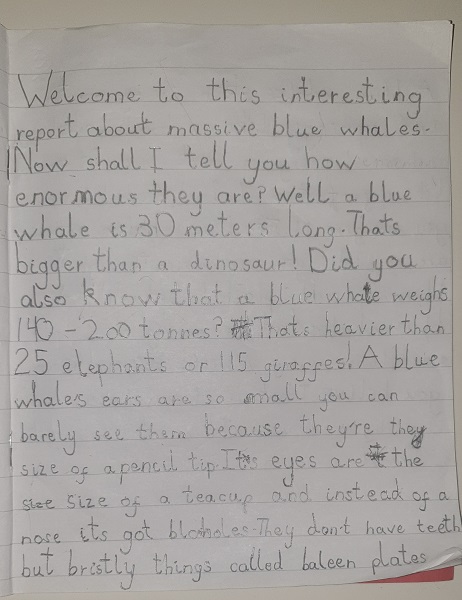 Welcome to this interesting
report about massive blue whales.
Now shall I tell you how
enormous they are? Well a blue
whale is 30 meters long. Thats
bigger than a dinosaur! Did you
also know that a blue whale weighs
140-200 tonnes? Thats heavier than
25 elephants or 115 giraffes! A blue
whales ears are so small you can
barely see them because they're they
size of a pencil tip. Its eyes are the
size size of a teacup and instead of a
nose its got bloholes. They don't have teeth
but bristly things called baleen plates